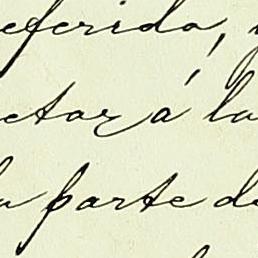 eferida,
ctar á la
la parte de